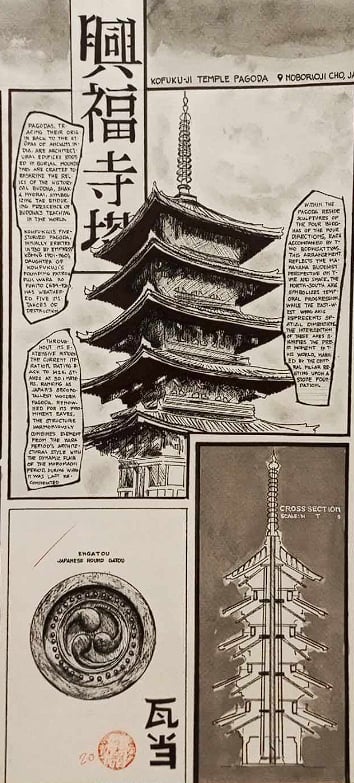 興福寺塔
KOFUKU-JI TEMPLE PAGODA NOBORIOJI CHO, JA
PAGODAS, TR-
ACING THEIR ORIG-
IN BACK TO THE ST-
UPAS OF ANCIENT IN-
DIA, ARE ARCHITECT-
URAL EDIFICES
THEY ARE CRAFTED TO
ENSHRINE THE REL-
ICS OF THE HISTOR-
ICAL BUDDHA,
SYMBOL-
IZING THE ENDUR-
ING PRESENCE OF
BUDDHA'S TEACHING
IN THE WORLD.
KOHFUKUJI'S FIVE-
STORIED PAGODA,
INITIALLY ERECTED
IN 730 BY EMPRESS
KOMYO (701-760),
DAUGHTER OF
KOHFUKUJI'S
FOUNDING PATRON
FUJIWARA NO
FUHITO (659-720),
HAS WEATHER-
ED FIVE INS-
TANCES OF
DESTRUCTION.
THROUGH-
OUT ITS E-
XTENSIVE HISTORY,
THE CURRENT ITE-
RATION, DATING B-
ACK TO 1426, ST-
ANDS AT 50.1 METE-
RS, RANKING AS
JAPAN'S SECOND
TALLEST WOODEN
PAGODA. RENOW-
NED FOR ITS PRO-
MINENT EAVES,
THE STRUCTURE
HARMONIOUSLY
COMBINES ELEMENTS
FROM THE NARA
PERIOD'S ARCHITE-
CTURAL STYLE WITH
THE DYNAMIC FLAIR
OF THE MUROMACHI
PERIOD, DURING WHICH
IT WAS LAST RE-
WITHIN THE
PAGODA RESIDE
SCULPTURES OF
THE FOUR BUDD-
HAS OF THE FOUR
DIRECTIONS, EACH
ACCOMPANIED BY T-
WO BODHISATTVAS.
THIS ARRANGEMENT
REFLECTS THE MA-
HAYANA BUDDHIST
PERSPECTIVE ON T-
IME AND SPACE. THE
NORTH-SOUTH AXIS
SYMBOLIZES TEMP-
ORAL PROGRESSION,
WHILE THE EAST-W-
EST AXIS
REPRESENTS SP-
ATIAL DIMENSIONS.
THE INTERSECTION
OF THESE AXES S-
IGNIFIES THE PRES-
ENT MOMENT IN T-
HIS WORLD, MARK-
ED BY THE CENTR-
AL PILLAR RE-
STING UPON A
STONE FOUN-
DATION.
CROSS SECTION
SCALE: N T S
ENGATOU
JAPANESE ROUND GATOU
瓦当
20